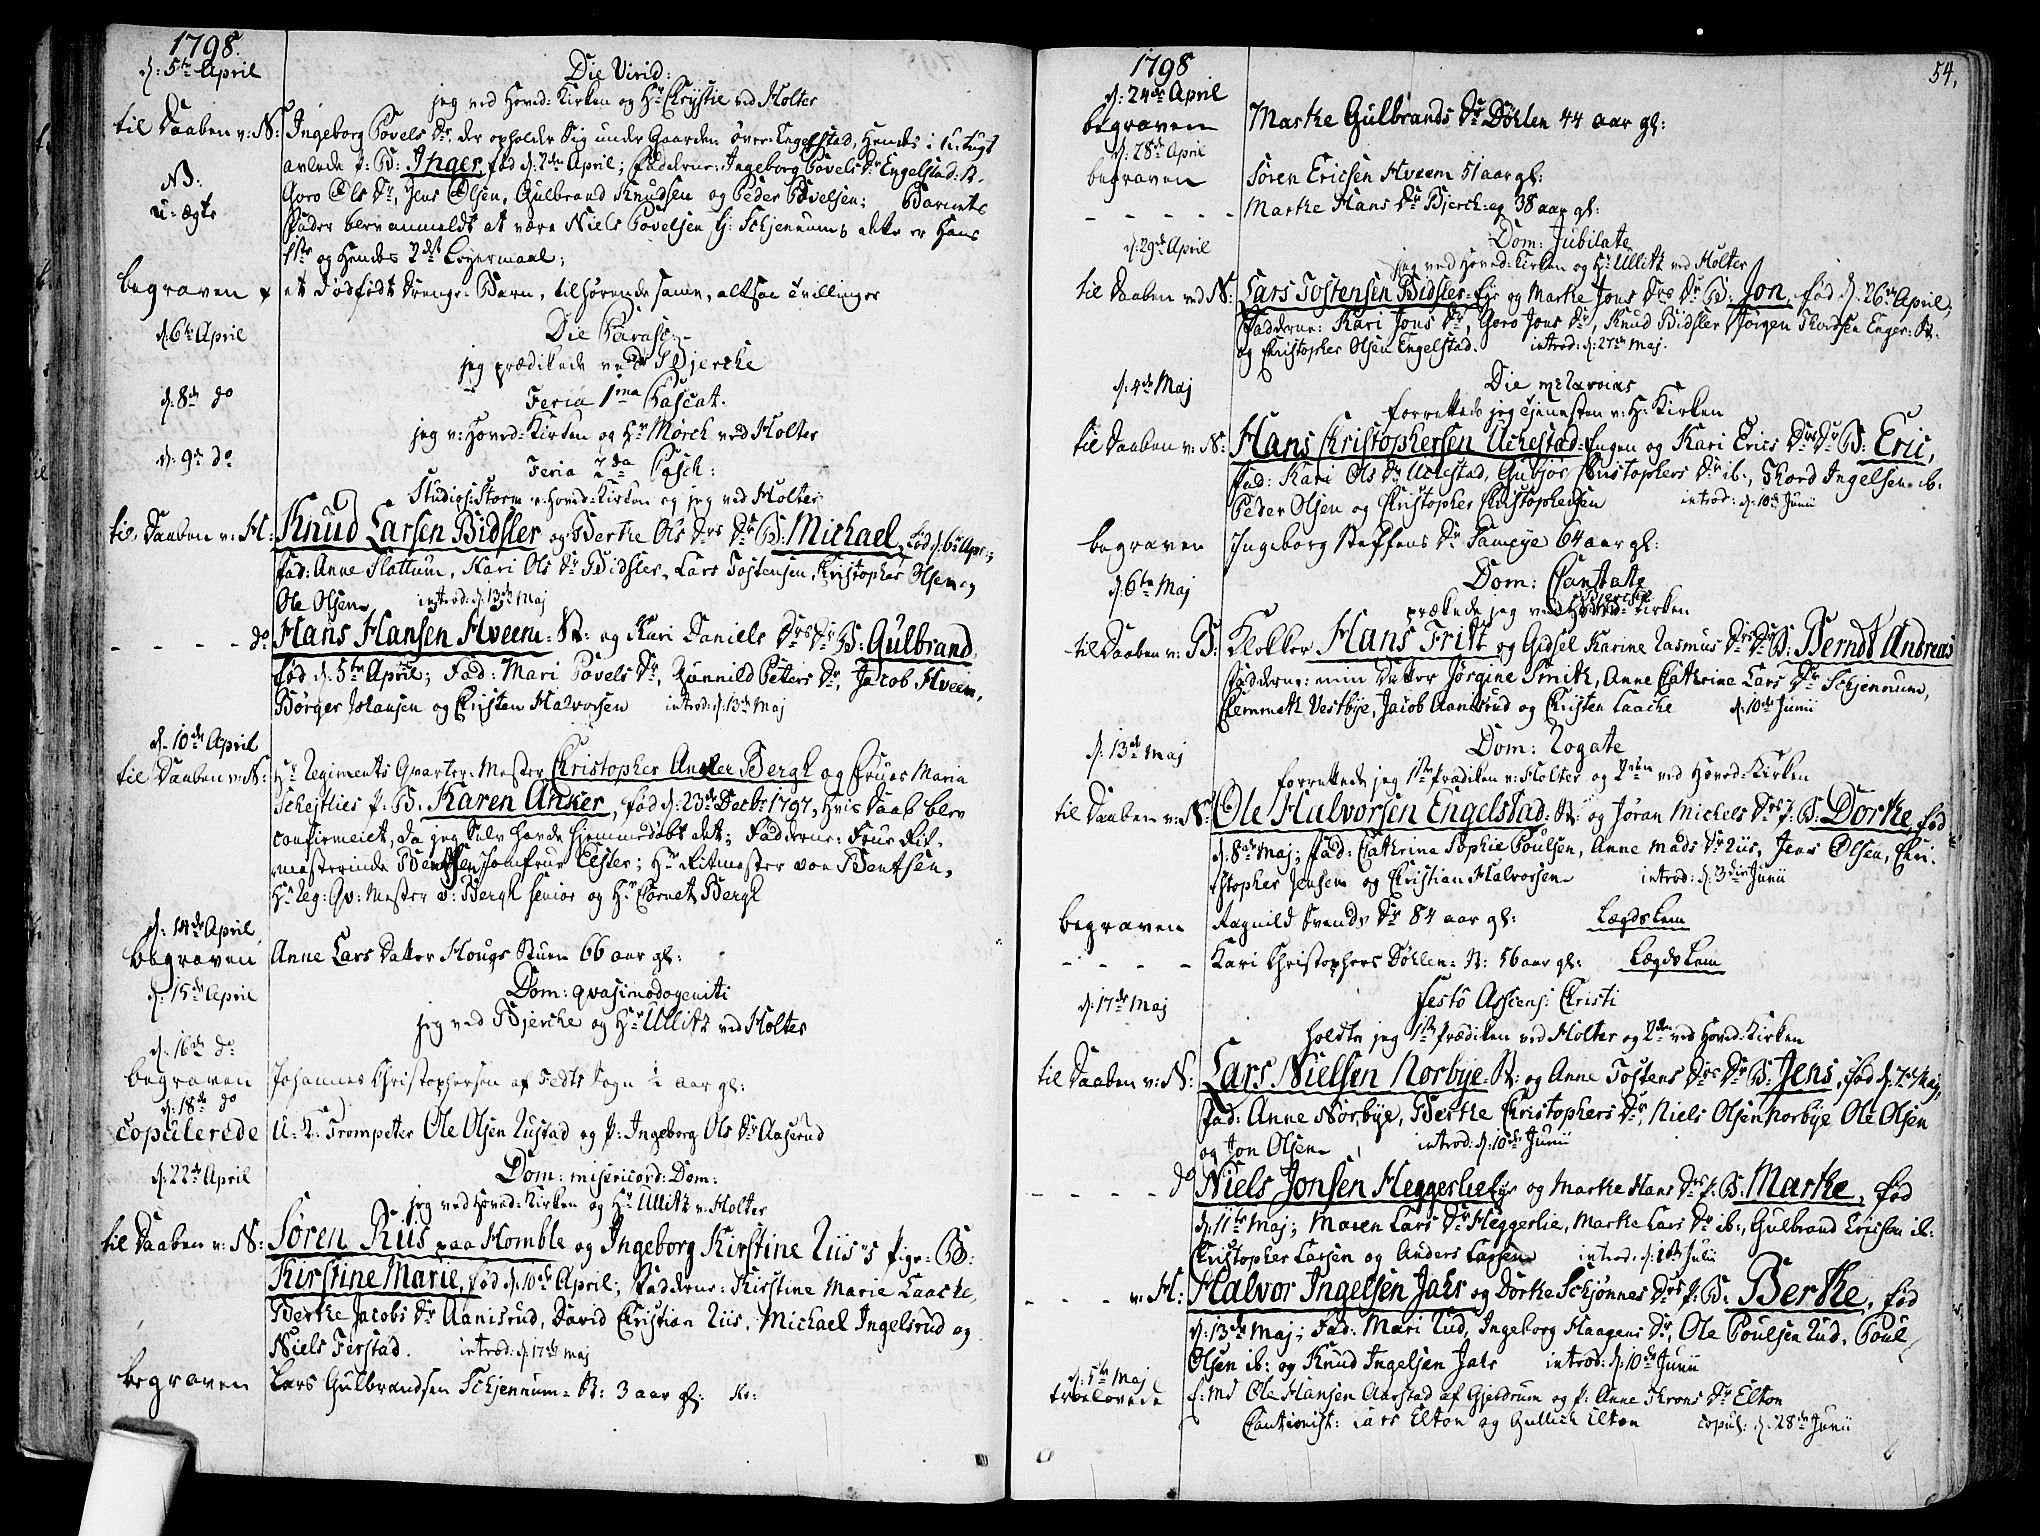 1798.
d: 5te April
Die Virid:
jeg ved Hoved-Kirken og Hr Chrystie ved Holter
til Daaben v: N: Ingeborg Povels Dr. der opholder Sig under Gaarden över Engelstad, Hendes i U-tugt
avlede p: B: Inger, föd d. 2den April; Fadderne: Ingeborg Povels Dr Engelstad: R.
NB: Goro Ols Dr, Jens Olsen, Gulbrand Knudsen og Peder Povelsen; Barnets
u-ægte Fader blev anmeldt at være Niels Povelsen Schjennum; dette er Hans
1ste og Hendes 2det Leyermaal;
begraven et dödfödt Drenge-Barn, tilhörende samme, altsaa Tvillinger
d: 6te April
Die Parasc:
jeg prædikede ved Bjercke
d: 8de do
Feria 1ma Pascat.
jeg v: Hoved-Kirken og Hr Mörch ved Holter
d: 9de do
Feria 2da Pasch:
Studios: Storm v: Hoved-Kirken og jeg ved Holter
til Daaben v: H: Knud Larsen Bidsler og Berthe Ols Drs Dr B: Michael, föd d: 6te Apr:;
Fad: Anne Slattum, Kari Ols Dr Bidsler, Lars Tostensen, Christopher Olsen og
Ole Olsen introd: d: 13de Maj
- - - do Hans Hansen Hveem: R: og Kari Daniels Drs Dr B: Gulbrand,
föd d: 5te April; Fad: Mari Povels Dr, Runnild Peters Dr, Jacob Hveem,
Börger Johansen og Christen Halvorsen introd: d: 13de Maj
d: 10de April
til Daaben v: N: Hr Regiments Qvarter-Mester Christopher Ancker Bergh og Frues Maria
Schejtlies p: B. Karen Anker, föd d: 23de Decbr 1797, Hvis Daab blev
confirmeret, da jeg Selv havde hjemmedöbt det; Fadderne: Frue Rit-
mesterinde Bentsen, Jomfrue Elster; Hr Ritmester von Bentsen,
Hr Reg: Qv: Mester v: Bergh senior og Hr Cornet Bergh
d: 14de April
begraven Anne Lars Datter Hougs Stuen 66 aar gl:
d: 15de April
Dom: qvasimodogeniti
jeg ved Bjercke og Hr Ullitz ved Holter
d: 16de do
begraven Johannes Christophersen af Fedts Sogn ½ aar gl:
d: 18de do
copulerede U: K: Trompeter Ole Olsen Rustad og p: Ingeborg Ols Dr Aaserud
d: 22de April
Dom: misericord: Dom:
jeg ved Hoved-Kirken og Hr Ullitz v: Holter
til Daaben v: N: Sören Riis paa Homble og Ingeborg Kirstine Riis's pige-B:
Kirstine Marie, föd d: 10de April; Fadderne: Kirstine Marie Laache,
Berthe Jacobs Dr Aanisrud, David Christian Riis, Michael Ingelsrud og
Niels Ferstad. introd: d: 17de Maj
begraven Lars Gulbrandsen Schjennum: R: 3 aar gl:
1798
54.
d: 24de April
begraven Marthe Gulbrands Dr Döhlen 44 aar gl:
d: 28de April
begraven Sören Ericsen Hveem 51 aar gl:
- - - - - Marthe Hans Dr Bjerch-eg 38 aar gl:
d: 29de April
Dom: Jubilate
jeg ved Hoved-Kirken og Hr Ullitz ved Holter
til Daaben ved N: Lars Tostensen Bidsler-Eje og Marthe Jons Drs Dr B: Jon, föd d. 26de April,
Fadderne: Kari Jons Dr, Goro Jons Dr, Knud Bidsler, Jörgen Thordsen Enger: R:
og Christopher Olsen Engelstad. introd: d: 27de Maj.
d: 4de Maj
Die
forrettede jeg Tjenesten v: H: Kirken
til Daaben v: N: Hans Christophersen Achestad-Engen og Kari Erics Drs Dr B: Eric,
Fad: Kari Ols Dr Achestad, Gubjör Christophers Dr ib:, Thord Ingelsen ib:
Peder Olsen og Christopher Christophersen introd: d: 10de Junii
begraven Ingeborg Steffens Dr 64 aar gl:
d: 6te Maj
Dom: Cantate
prækede jeg ved Bjercke Kirken
til Daaben v: B: Klokker Hans Fridt og Gidsel Karine Rasmus Drs Dr B: Berndt Andreas
Fadderne: min Datter Jörgine Smith, Anne Cathrine Lars Dr Schjennum,
Clemmeth Vestbye, Jacob Aanisrud og Christen Laache d: 10de Junii
d: 13de Maj
Dom: Rogate
forrettede jeg 1ste Prædiken v: Holter og 2den ved Hoved-Kirken
til Daaben v: N: Ole Halvorsen Engelstad: R: og Jöran Michels Drs p: B: Dorthe, föd
d: 8de Maj; Fad: Cathrina Sophie Poulsen, Anne Mads Dr Riis, Jens Olsen, Chri-
stopher Jensen og Christian Halvorsen introd: d: 3die Junii
begraven Ragnild Svends Dr 84 aar gl: Lægdslem
- - - - Kari Christophers Döhlen: R: 56 aar gl: Lægdslem
d: 17de Maj
Festo Ascens: Christi
holdte jeg 1ste Prædiken ved Holter og 2den ved Hoved-Kirken
til Daaben v: N: Lars Nielsen Norbye R: og Anne Tostens Drs Dr B: Jens, föd d. 7de Maj,
Fad: Anne Norbye, Berthe Christophers Dr, Niels Olsen Norbye, Ole Olsen
og Jon Olsen introd: d: 10de Junii
- - - - do Niels Jonsen Heggerlie Eje og Marthe Hans Drs p: B: Marthe, föd
d: 11te Maj; Maren Lars Dr Heggerlie, Marthe Lars Dr ib:, Gulbrand Ericsen ib:
Christopher Larsen og Anders Larsen introd: d: 1ste Julii
- - - - v: H: Halvor Ingelsen Jahr og Dorthe Schjönnes Drs p: B: Berthe, föd
d: 13de Maj; Fad: Mari Rud, Ingeborg Haagens Dr, Ole Poulsen Rud, Poul
Olsen ib: og Knud Ingelsen Jahr introd: d: 10de Junii
d: 5te Maj
troelovede Ole Hansen Aarstad af Gjeldrum og p: Anne Throns Dr Elton
Cautionist: Lars Elton og Gullich Elton copul: d. 28de Junii